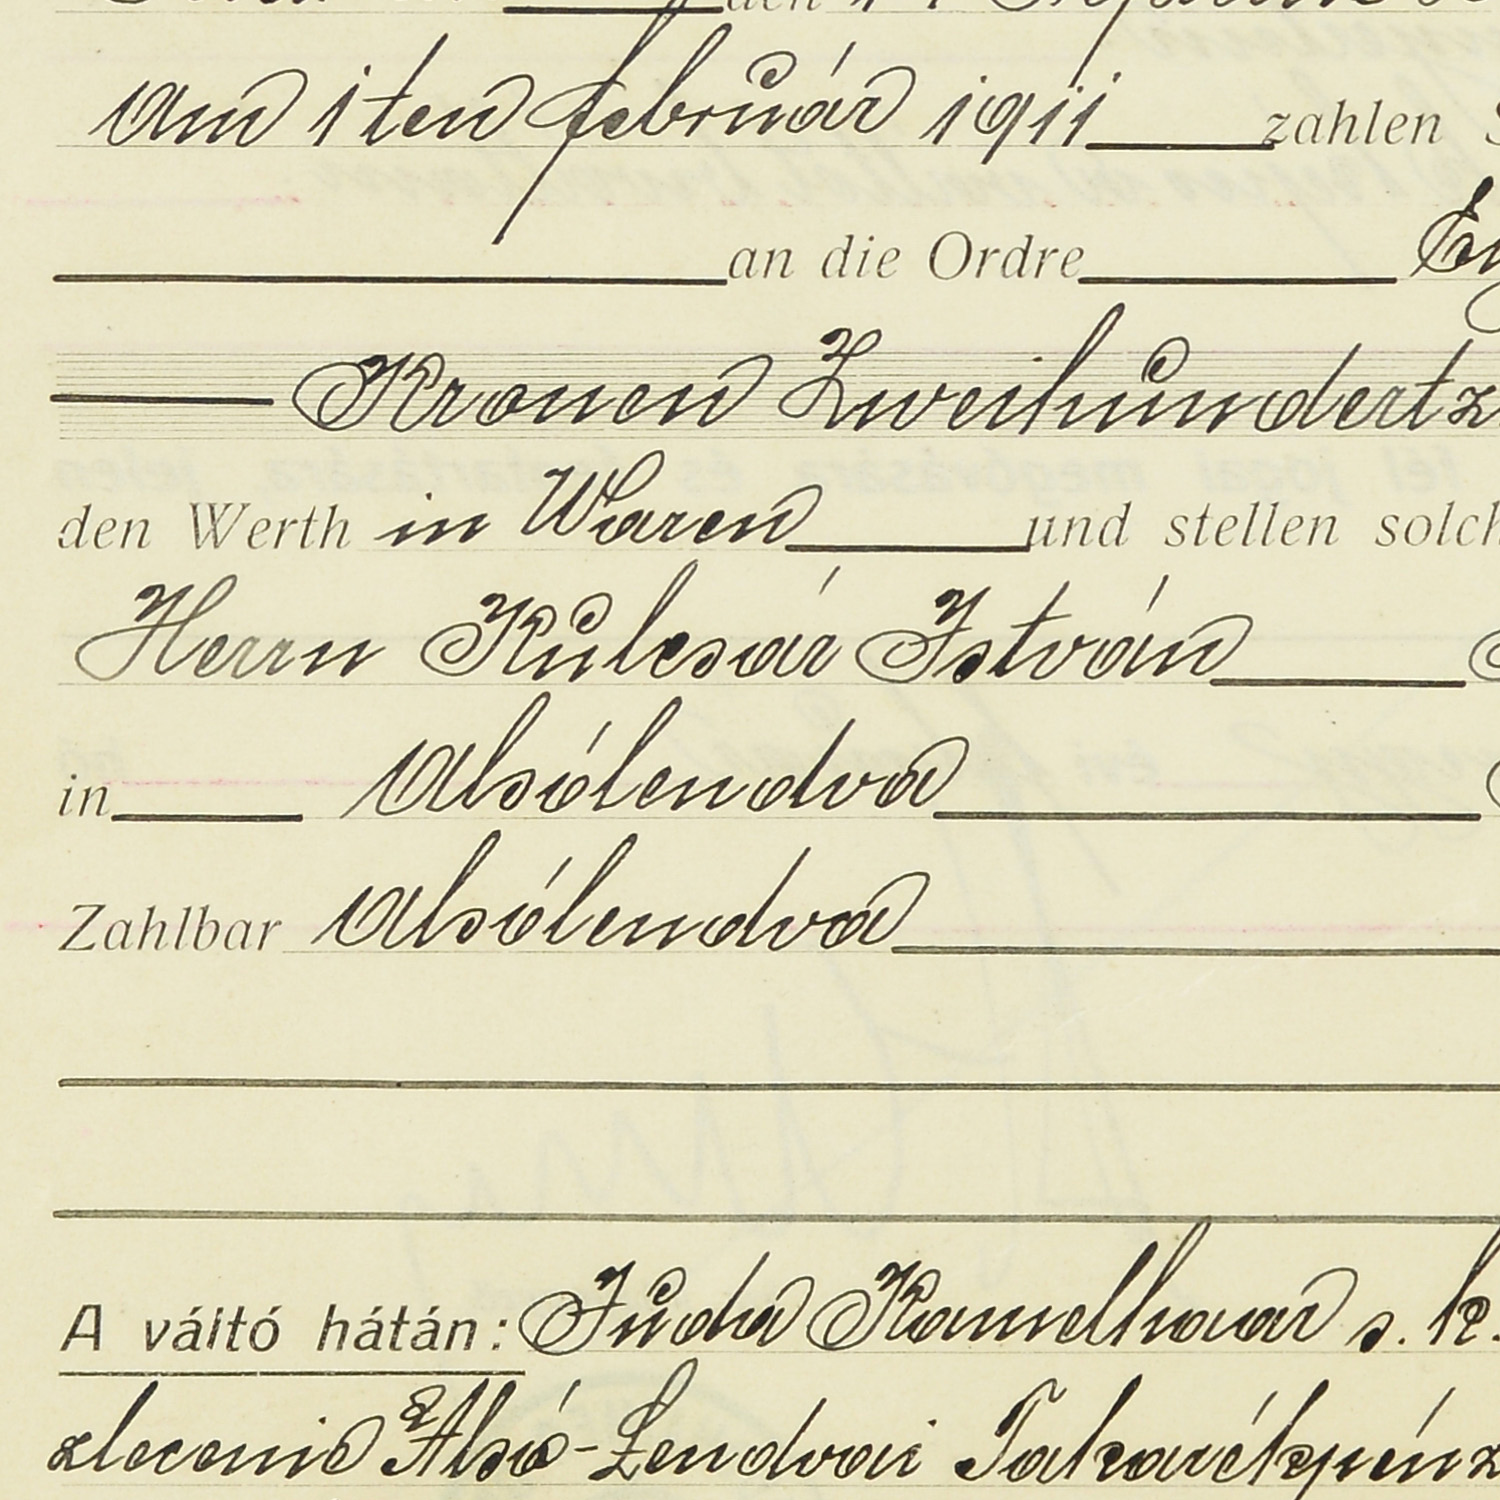 den
Am 1ten február 1911 zahlen
an die Ordre
Kronen Zweihundert
den Werth in Waren und stellen solch
Herrn Kulcsár István
in Alsólendva
Zahlbar Alsólendva
A váltó hátán: Juda Kamelhaar s. k.
zlecenie Alsó-Lendvai Takarékpénz